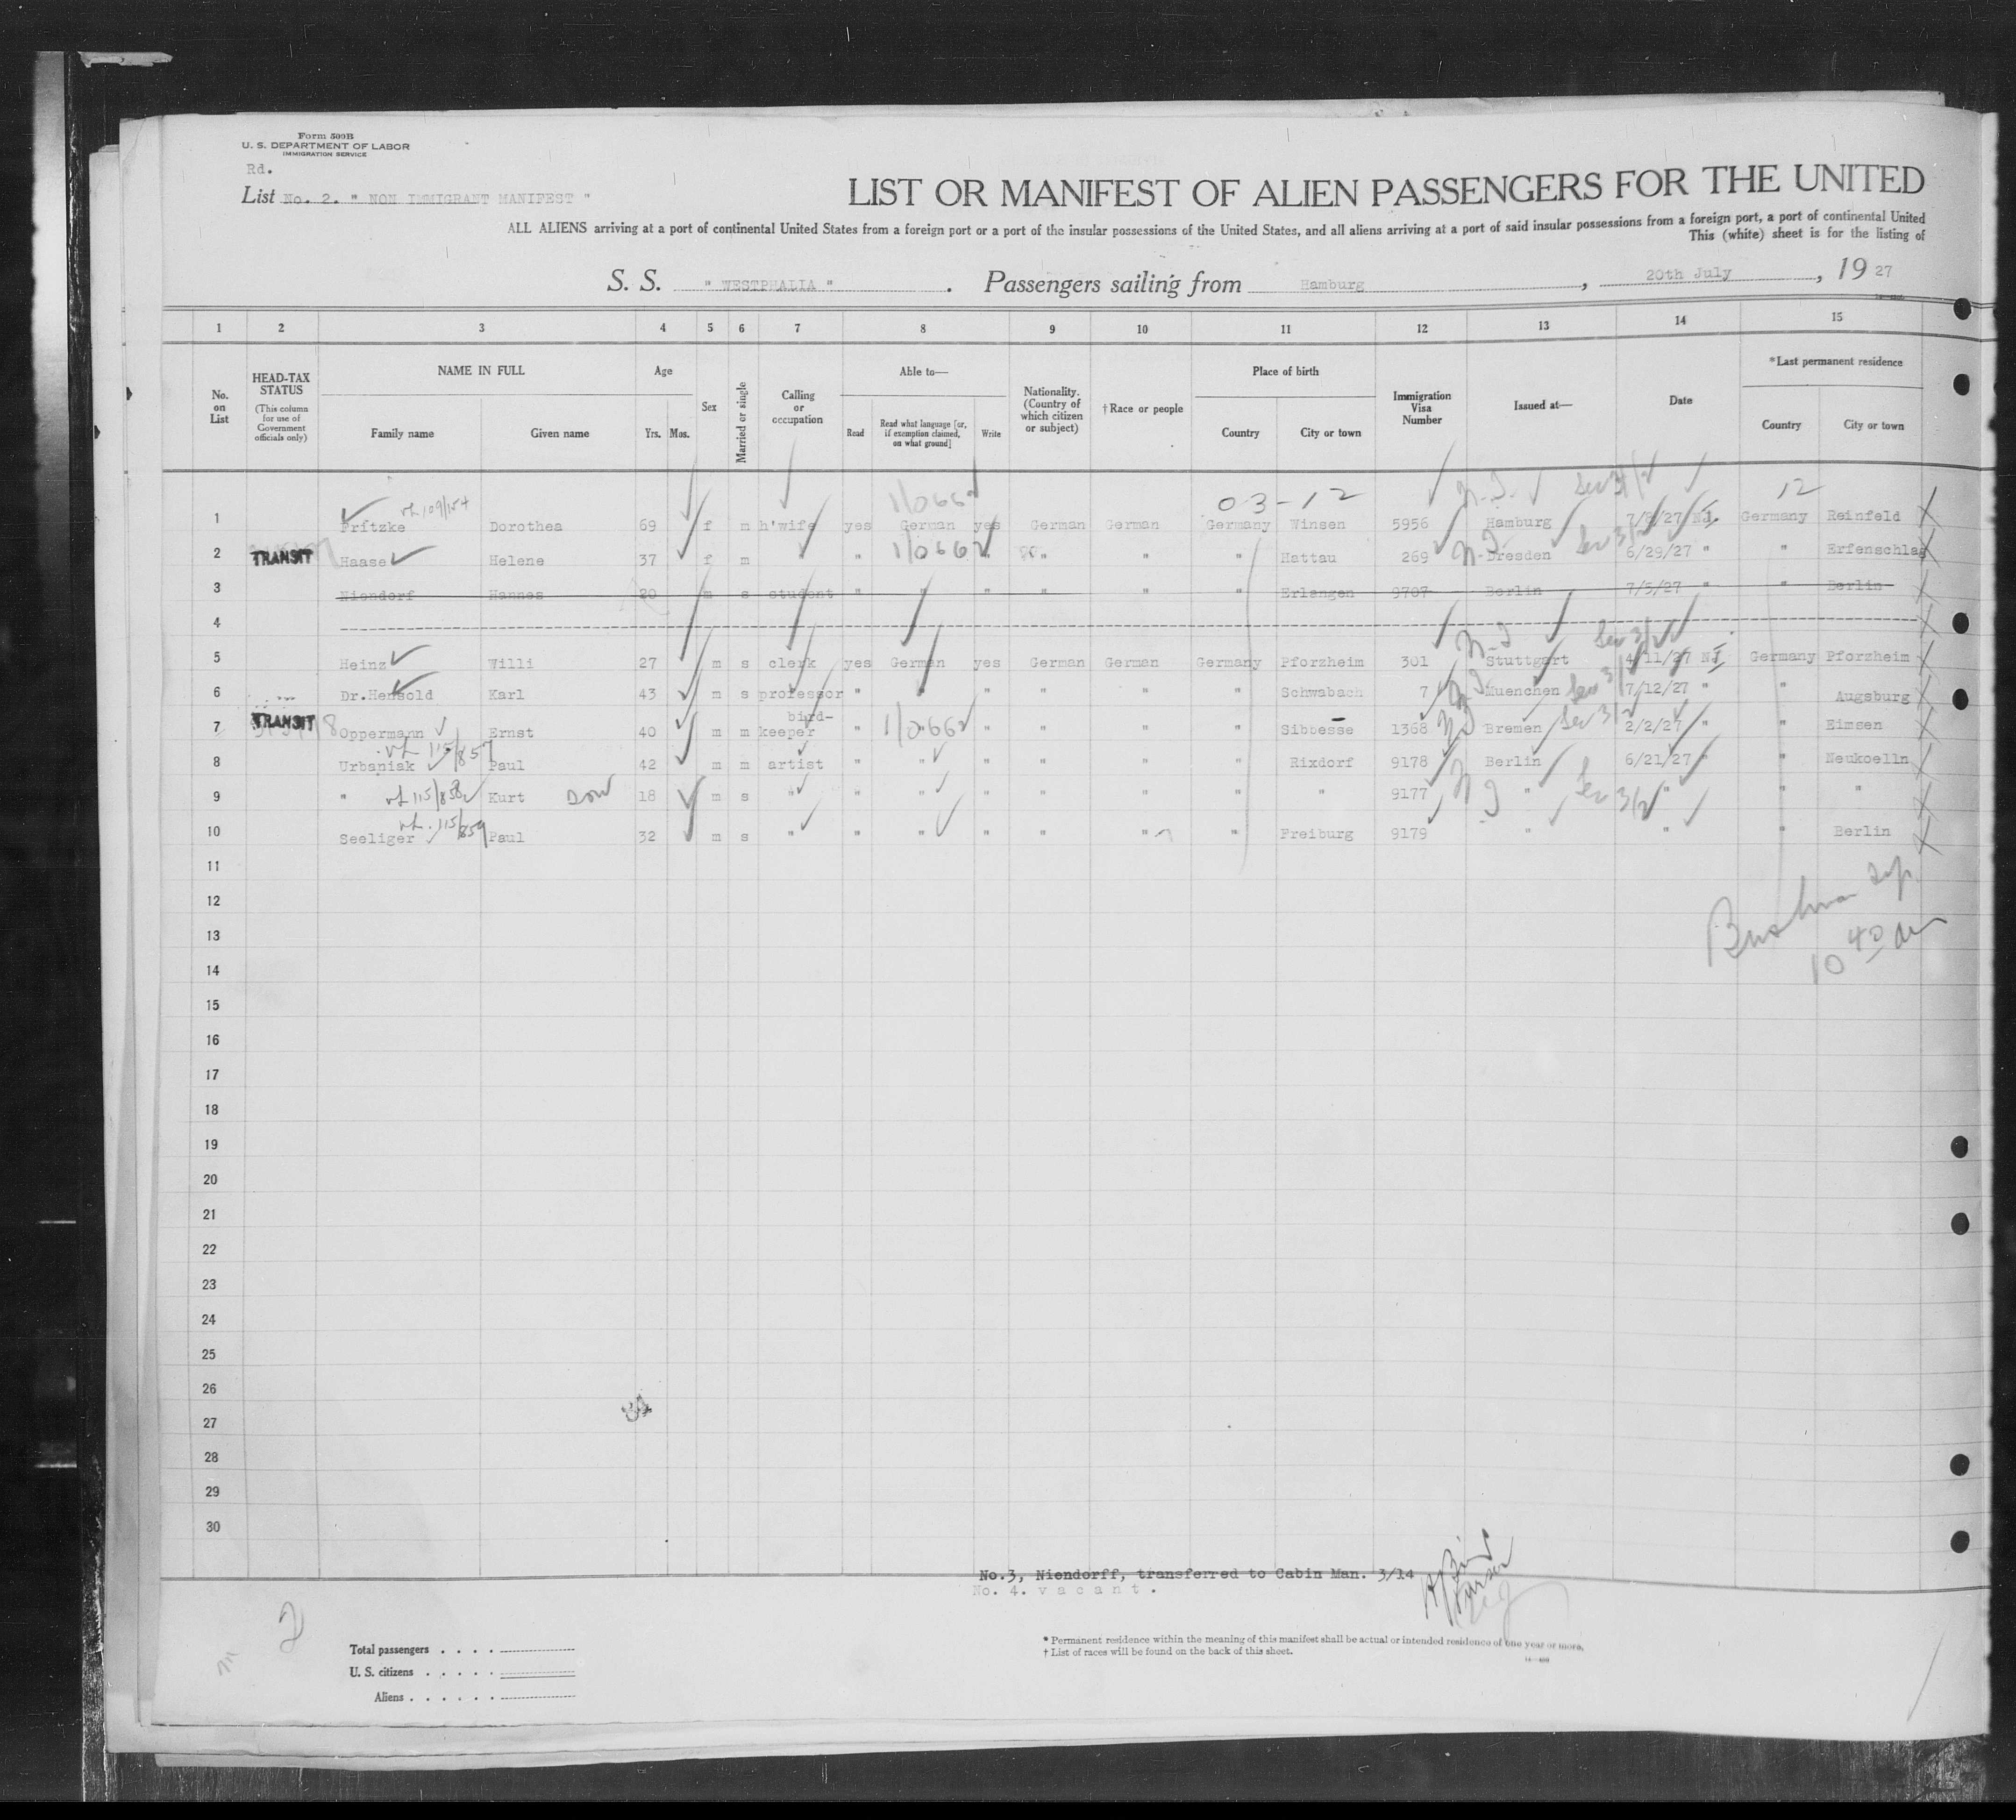 Form 500B
U. S. DEPARTMENT OF LABOR
IMMIGRATION SERVICE
Rd.
List No. 2. " NON IMMIGRANT MANIFEST "
LIST OR MANIFEST OF ALIEN PASSENGERS FOR THE UNITED
ALL ALIENS arriving at a port of continental United States from a foreign port or a port of the insular possessions of the United States, and all aliens arriving at a port of said insular possessions from a foreign port, a port of continental United
This (white) sheet is for the listing of
S. S. " WESTPHALIA " . Passengers sailing from Hamburg , 20th July , 19 27
1 2 3 4 5 6 7 8 9 10 11 12 13 14 15
No. on List
HEAD-TAX STATUS (This column for use of Government officials only)
NAME IN FULL Family name Given name
Age Yrs. Mos.
Sex
Married or single
Calling or occupation
Able to— Read Read what language [or, if exemption claimed, on what ground] Write
Nationality. (Country of which citizen or subject)
†Race or people
Place of birth Country City or town
Immigration Visa Number
Issued at—
Date
*Last permanent residence Country City or town
03-12 12
1 Fritzke 109/154 Dorothea 69 f m h'wife yes German yes German German Germany Winsen 5956 Hamburg 7/8/27 Germany Reinfeld
2 TRANSIT Haase Helene 37 f m " 1/0662 " " " " Hattau 269 Dresden 6/29/27 " " Erfenschlag
3 Niendorf Hannes 20 m s student " " " " " " Erlangen 9707 Berlin 7/5/27 " " Berlin
4
5 Heinz Willi 27 m s clerk yes German yes German German Germany Pforzheim 301 Stuttgart 4/11/27 Germany Pforzheim
6 Dr.Hensold Karl 43 m s professor " " " " " " Schwabach 7 Muenchen 7/12/27 " " Augsburg
7 TRANSIT Oppermann Ernst 40 m m bird-keeper " " 1/0662 " " " " Sibbesse 1368 Bremen 2/2/27 " " Eimsen
8 Urbaniak 115/857 Paul 42 m m artist " " " " " " Rixdorf 9178 Berlin 6/21/27 " " Neukoelln
9 " 115/858 Kurt son 18 m s " " " " " " " " 9177 " " " "
10 Seeliger 115/859 Paul 32 m s " " " " " " " Freiburg 9179 " " " Berlin
11
12
13
10 40 am
14
15
16
17
18
19
20
21
22
23
24
25
26
27
28
29
30
No.3, Niendorff, transferred to Cabin Man. 3/14
No. 4. v a c a n t .
2
Total passengers . . . .
U. S. citizens . . . . .
Aliens . . . . . .
* Permanent residence within the meaning of this manifest shall be actual or intended residence of one year or more.
† List of races will be found on the back of this sheet.